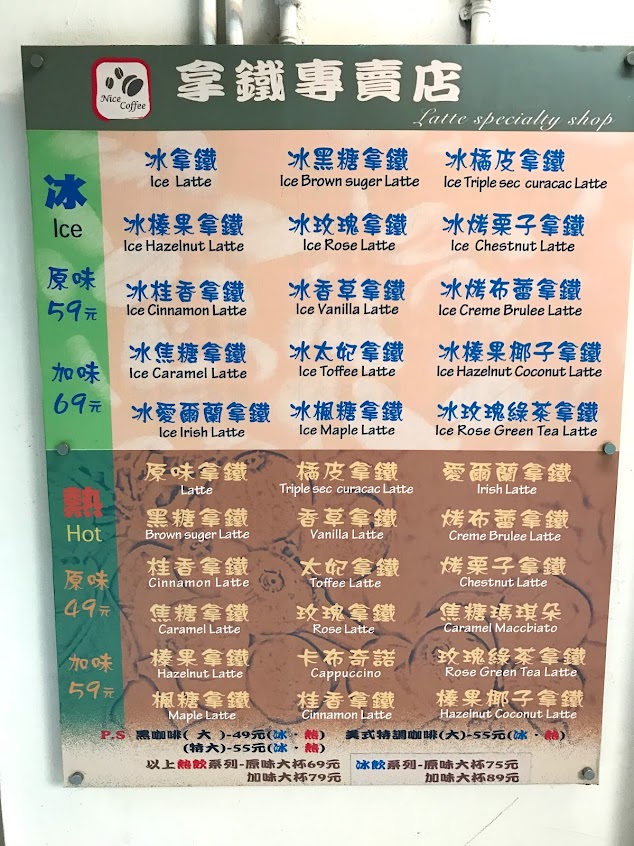 Nice Coffee
拿鐵專賣店
Latte specialty shop
冰
Ice
原味
59元
加味
69元
冰拿鐵 冰黑糖拿鐵 冰橘皮拿鐵
Ice Latte Ice Brown suger Latte Ice Triple sec curacac Latte
冰榛果拿鐵 冰玫瑰拿鐵 冰烤栗子拿鐵
Ice Hazelnut Latte Ice Rose Latte Ice Chestnut Latte
冰桂香拿鐵 冰香草拿鐵 冰烤布蕾拿鐵
Ice Cinnamon Latte Ice Vanilla Latte Ice Creme Brulee Latte
冰焦糖拿鐵 冰太妃拿鐵 冰榛果椰子拿鐵
Ice Caramel Latte Ice Toffee Latte Ice Hazelnut Coconut Latte
冰愛爾蘭拿鐵 冰楓糖拿鐵 冰玫瑰綠茶拿鐵
Ice Irish Latte Ice Maple Latte Ice Rose Green Tea Latte
熱
Hot
原味
49元
加味
59元
原味拿鐵 橘皮拿鐵 愛爾蘭拿鐵
Latte Triple sec curacac Latte Irish Latte
黑糖拿鐵 香草拿鐵 烤布蕾拿鐵
Brown suger Latte Vanilla Latte Creme Brulee Latte
桂香拿鐵 太妃拿鐵 烤栗子拿鐵
Cinnamon Latte Toffee Latte Chestnut Latte
焦糖拿鐵 玫瑰拿鐵 焦糖瑪琪朵
Caramel Latte Rose Latte Caramel Maccbiato
榛果拿鐵 卡布奇諾 玫瑰綠茶拿鐵
Hazelnut Latte Cappuccino Rose Green Tea Latte
楓糖拿鐵 桂香拿鐵 榛果椰子拿鐵
Maple Latte Cinnamon Latte Hazelnut Coconut Latte
P.S 黑咖啡(大)-49元(冰.熱) 美式特調咖啡(大)-55元(冰.熱)
(特大)-55元(冰.熱)
以上熱飲系列-原味大杯69元 冰飲系列-原味大杯75元
加味大杯79元 加味大杯89元